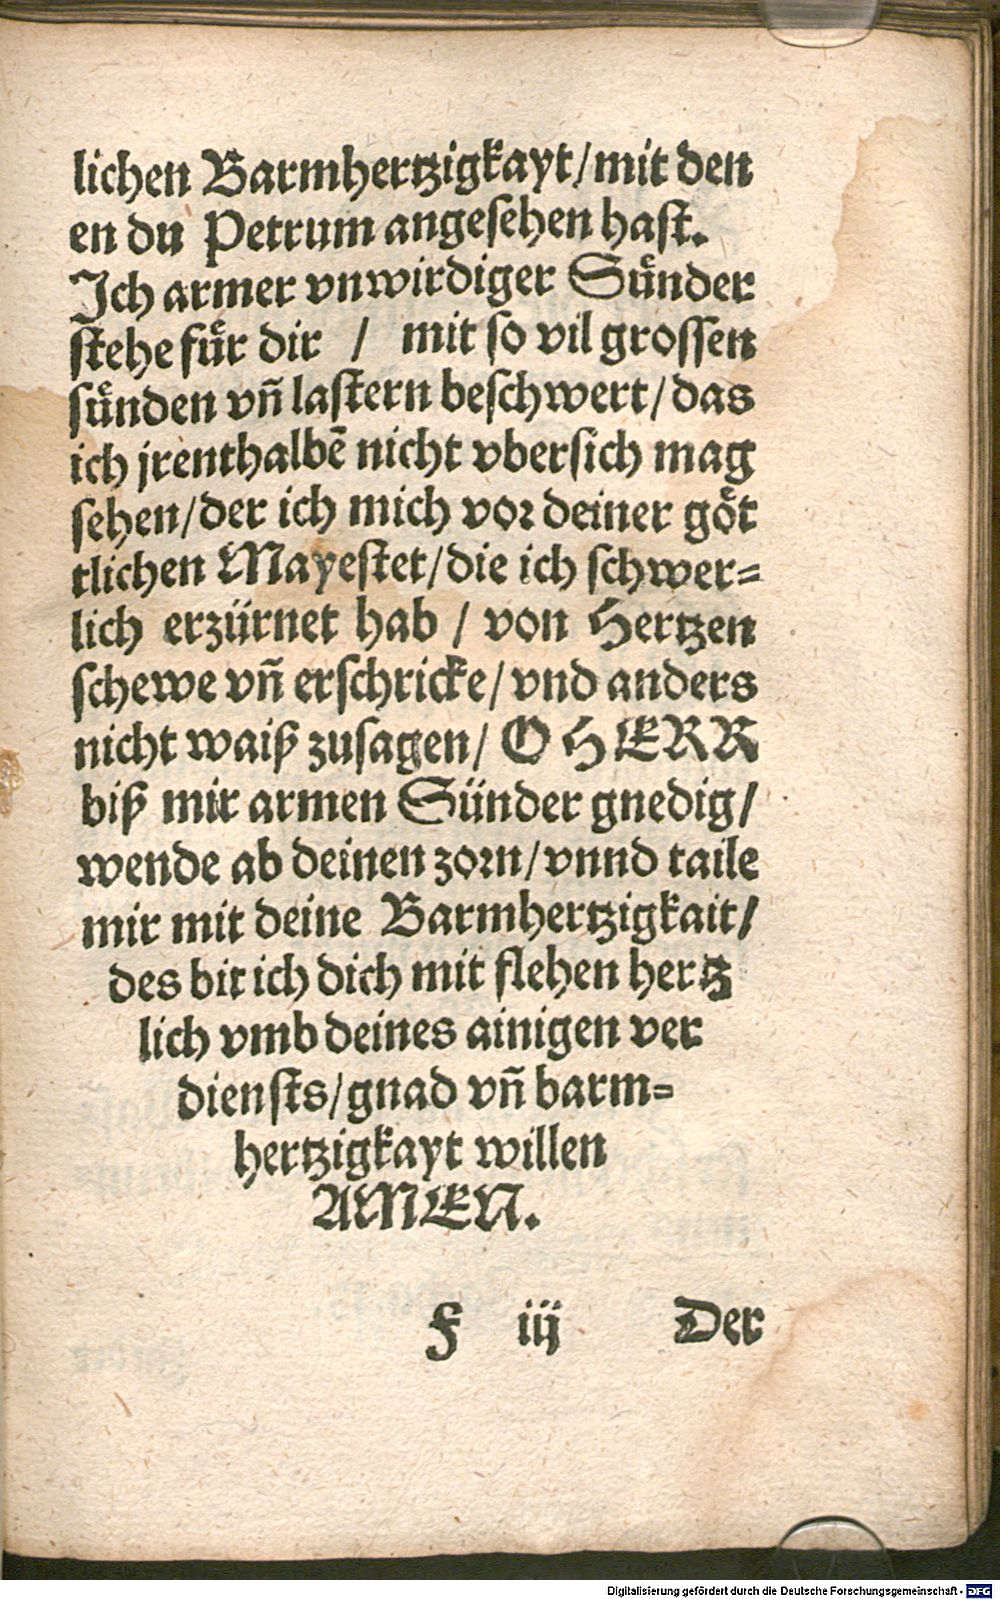 lichen Barmhertzigkayt/mit den
en du Petrum angesehen hast.
Jch armer vnwirdiger Sůnder
stehe fůr dir / mit so vil grossen
sůnden vñ lastern beschwert/das
ich jrenthalbẽ nicht vbersich mag
sehen/der ich mich vor deiner gȯt
tlichen Mayestet/die ich schwer=
lich erzürnet hab / von Hertzen
schewe vñ erschricke/vnd anders
nicht waiß zusagen/ O HERR
biß mir armen Sünder gnedig/
wende ab deinen zorn/vnnd taile
mir mit deine Barmhertzigkait/
des bit ich dich mit flehen hertz
lich vmb deines ainigen ver
diensts/gnad vñ barm=
hertzigkayt willen
AMEN.
F iij Der
Digitalisierung gefördert durch die Deutsche Forschungsgemeinschaft - DFG